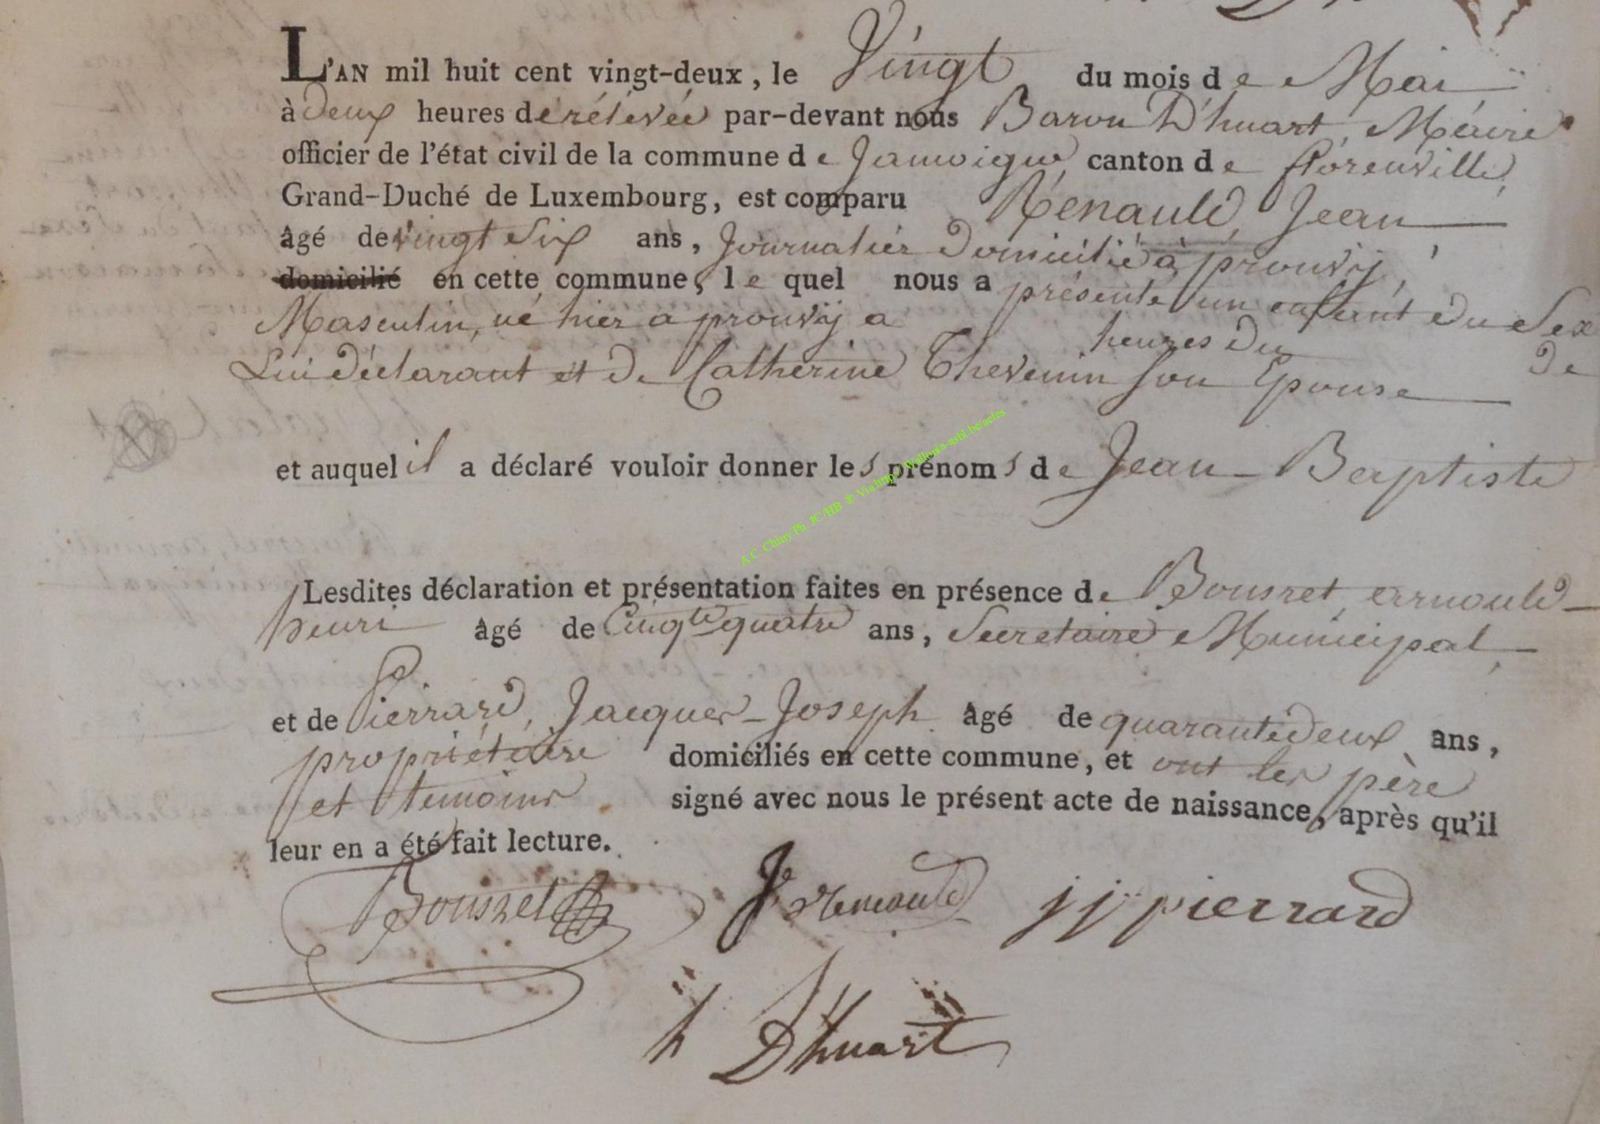 L'AN mil huit cent vingt-deux, le Vingt du mois de Mai
à deux heures de rélévée par-devant nous Baron D'huart, Maire
officier de l'état civil de la commune de Jamoigne, canton de florenville,
Grand-Duché de Luxembourg, est comparu Renauld, Jean
âgé de vingt Six ans, Journalier Domicilié à prouvÿ,
domicilié en cette commune, le quel nous a présenté un enfant du Sex
Masculin, né hier a prouvÿ a heures du de
Lui déclarant et de Catherine Thevenin Son Epouse
et auquel il a déclaré vouloir donner les prénoms de Jean-Baptiste
Lesdites déclaration et présentation faites en présence de Bousret, arnould-
henri âgé de Cinqte quatre ans, Secretaire Municipal,
et de Pierrard, Jacques-Joseph âgé de quarante deux ans,
propriétaire domiciliés en cette commune, et ont les père
et temoins signé avec nous le présent acte de naissance, après qu'il
leur en a été fait lecture.
Bousret J renauld jj pierrard
h D'huart
A.C. Chiny Ph. JC/HB & Via